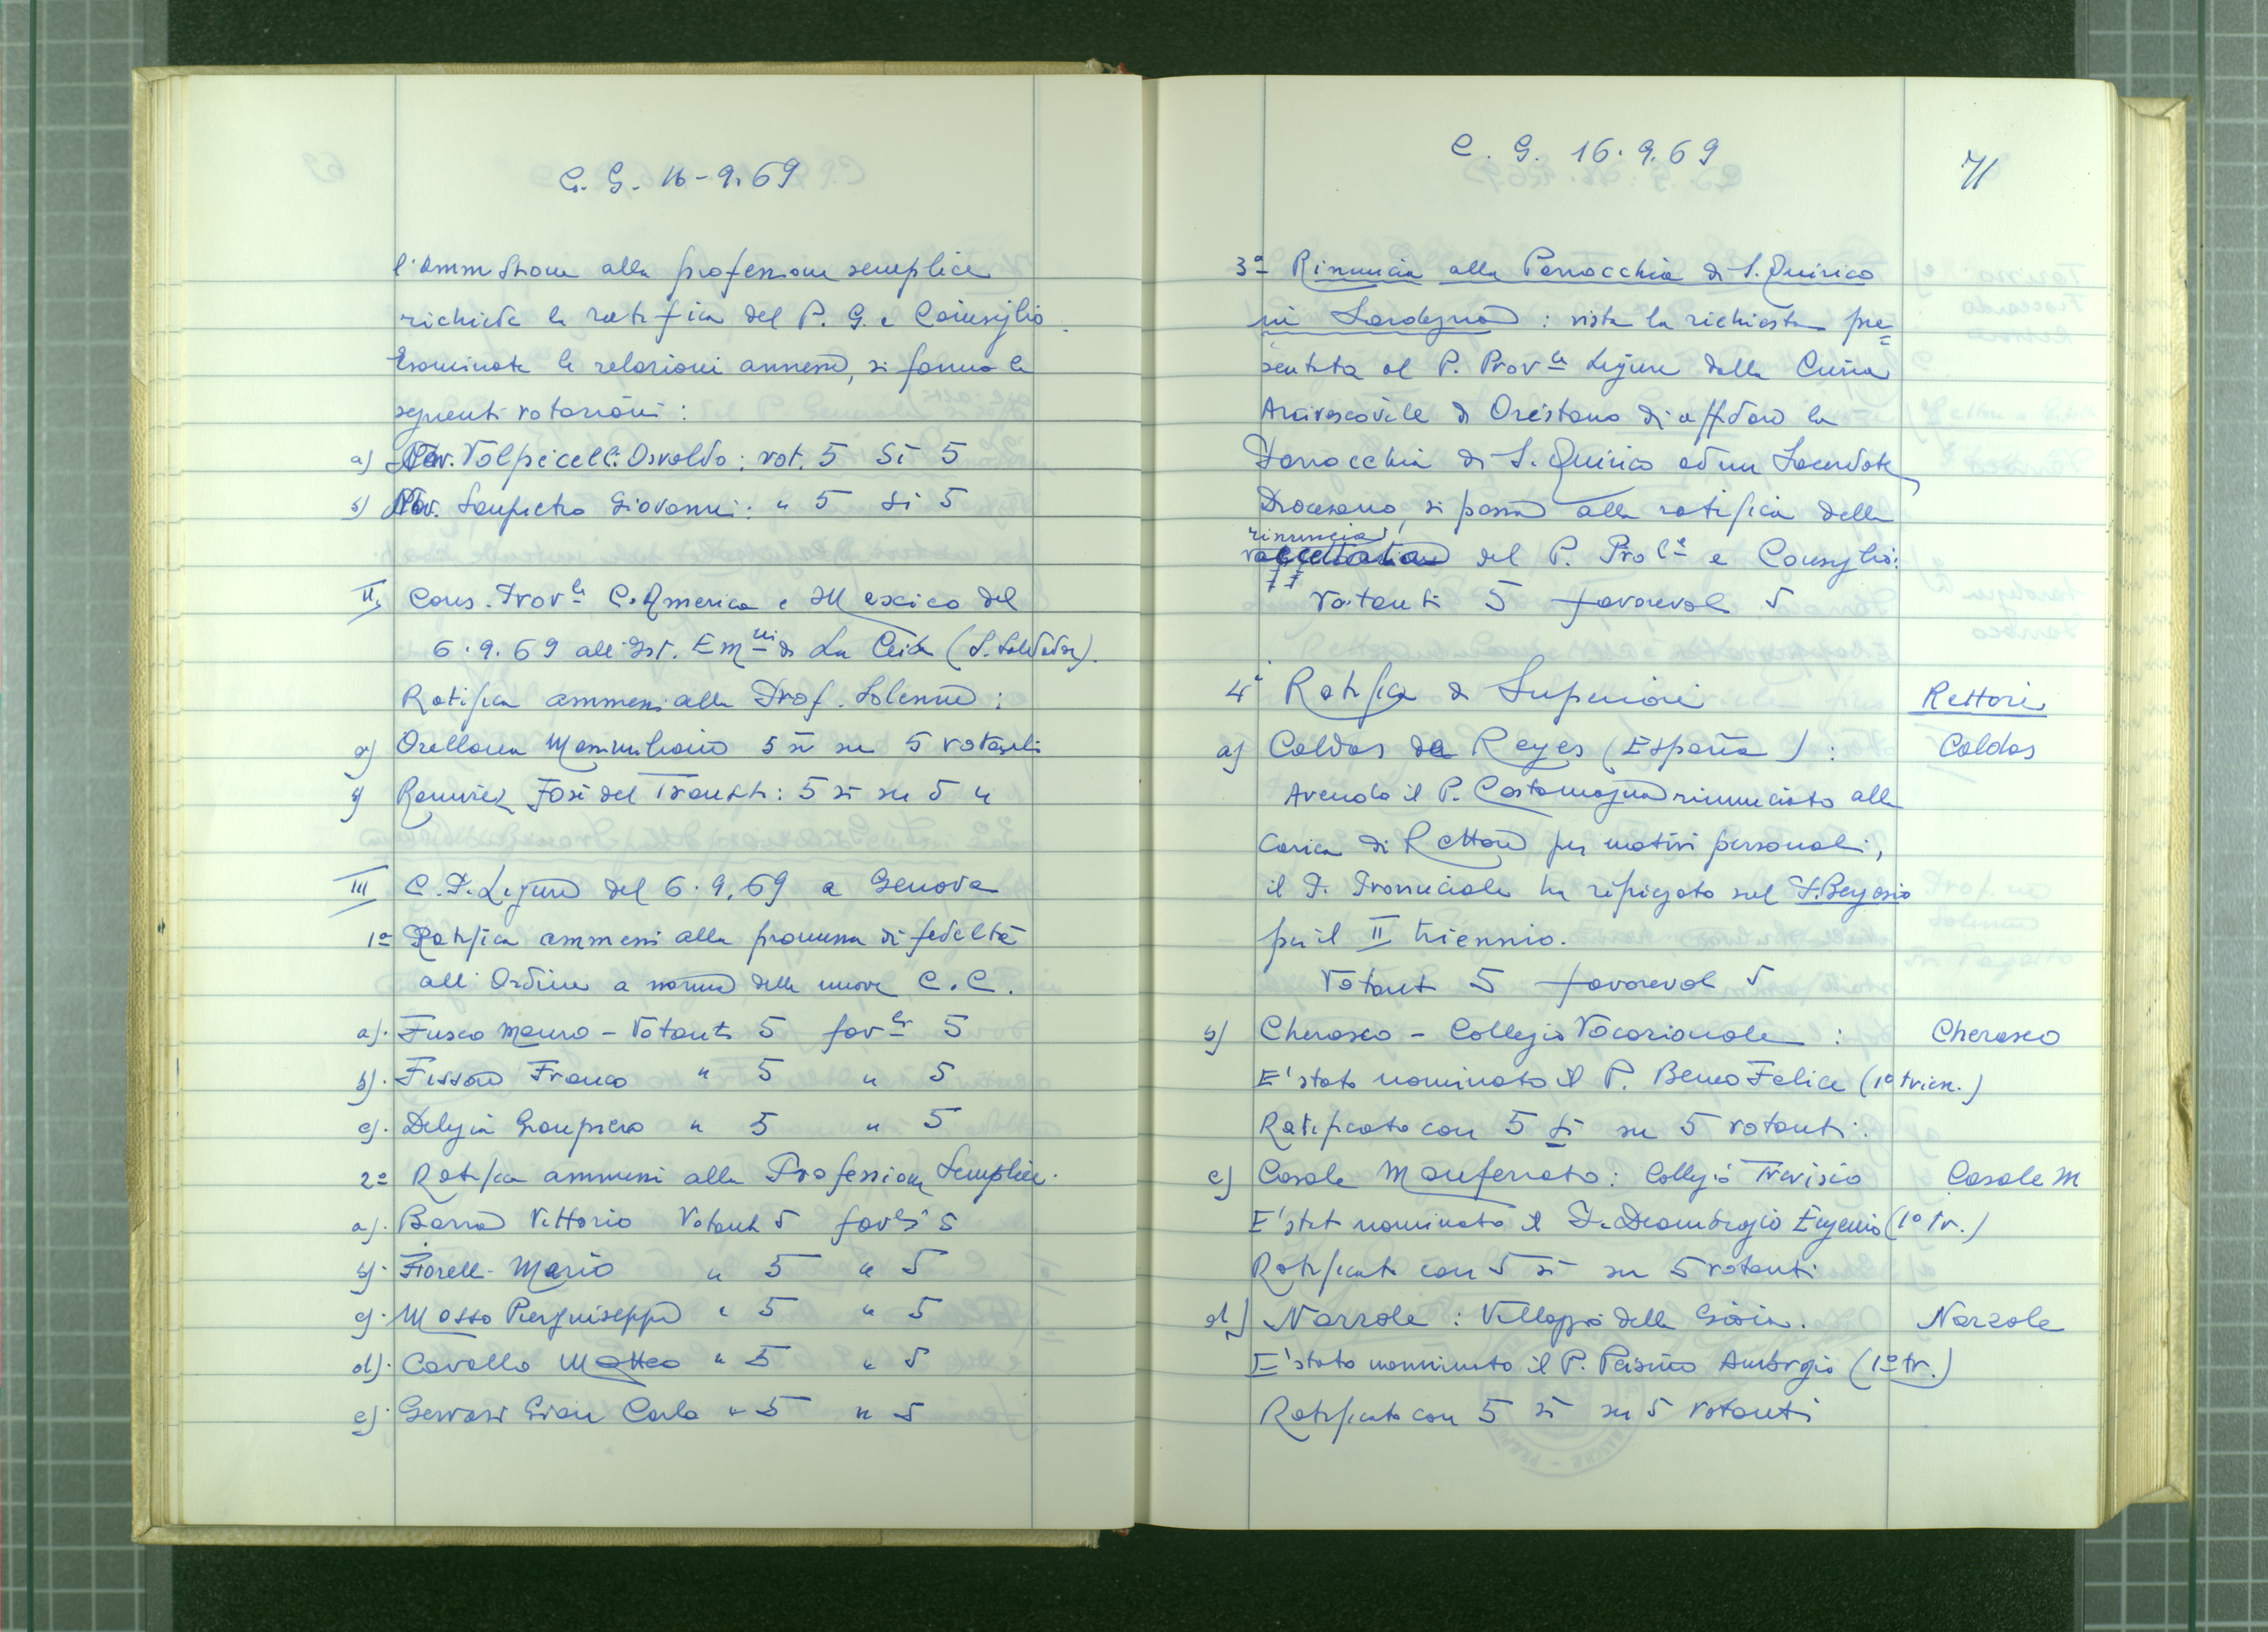 C. G. 16-9.69
l'ammissione alla professione semplice
richiede la ratifica del P. G. e Consiglio.
Esaminate le relazioni annesse, si fanno le
seguenti votazioni:
a) Nov. Volpicelli Osvaldo: vot. 5 Si 5
b) Nov. Sanpietro Giovanni: " 5 Si 5
II, Cons. Prov.le C. America e Mexico del
6.9.69 all'Ist. Em.ni di La Ceiba (S. Salvador).
Ratifica ammessi alla Prof. Solenne:
a) Orellana Massimiliano 5 si su 5 votanti
b) Ramirez José del Transit: 5 si su 5 "
III C. P. Ligure del 6.9.69 a Genova
1º Ratifica ammessi alla promessa di fedeltà
all'Ordine a norma delle nuove C.C.
a). Fusco Mauro - Votanti 5 fav.li 5
b). Fissore Franco " 5 " 5
c). Delegià Gianpiero " 5 " 5
2º Ratifica ammessi alla Professione Semplice.
a). Barra Vittorio Votanti 5 fav.li 5
b). Fiorelli Mario " 5 " 5
c). Mosso Piergiuseppe " 5 " 5
d). Cavallo Matteo " 5 " 5
e). Gervasi Gian Carlo " 5 " 5
C. G. 16.9.69
71
3º Rinuncia alla Parrocchia di S. Quirico
in Sardegna: vista la richiesta pre=
sentata al P. Prov.le Ligure dalla Curia
Arcivescovile di Oristano di affidare la
Parrocchia di S. Quirico ad un Sacerdote
Diocesano, si passa alla ratifica della
rinuncia
accettazione del P. Pro.le e Consiglio:
Votanti 5 favorevoli 5
4º Ratifica di Superiori
Rettori
a) Caldas de Reyes (España):
Caldas
Avendo il P. Costamagna rinunciato alla
carica di Rettore per motivi personali,
il P. Provinciale ha ripiegato sul P. Bergesio
per il II triennio.
Votanti 5 favorevoli 5
b) Cherasco - Collegio Vocazionale:
Cherasco
E' stato nominato il P. Beneo Felice (1º trien.)
Ratificato con 5 si su 5 votanti.
c) Casale Monferrato: Collegio Trevisio
Casale M
E' stato nominato il P. Deambrogio Eugenio (1º tr.)
Ratificato con 5 si su 5 votanti
d) Narzole: Villaggio della Gioia.
Narzole
E' stato nominato il P. Perisino Ambrogio (1º tr.)
Ratificato con 5 si su 5 votanti